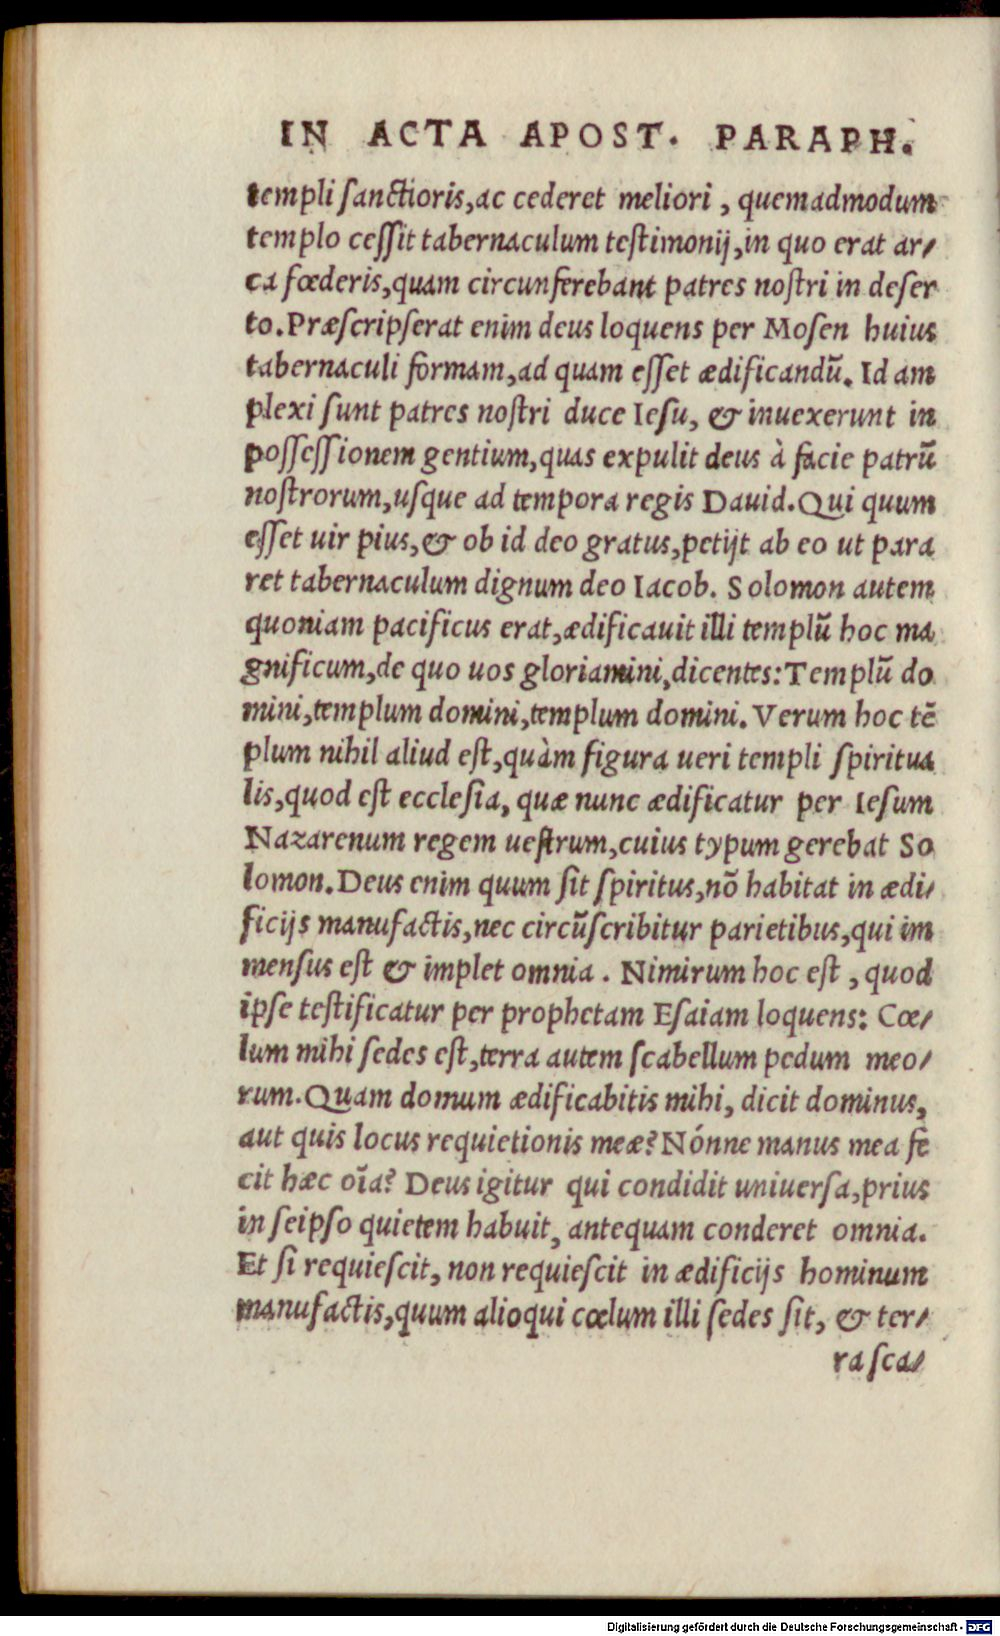 IN ACTA APOST. PARAPH.
templi ſanctioris, ac cederet meliori, quemadmodum
templo ceſſit tabernaculum teſtimonij, in quo erat ar/
ca fœderis, quam circunferebant patres noſtri in deſer
to. Præſcripſerat enim deus loquens per Moſen huius
tabernaculi formam, ad quam eſſet ædificandū. Id am
plexi ſunt patres noſtri duce Ieſu, & inuexerunt in
poſſeſſionem gentium, quas expulit deus à facie patrū
noſtrorum, uſque ad tempora regis Dauid. Qui quum
eſſet uir pius, & ob id deo gratus, petijt ab eo ut para
ret tabernaculum dignum deo Iacob. Solomon autem
quoniam pacificus erat, ædificauit illi templū hoc ma
gnificum, de quo uos gloriamini, dicentes: Templū do
mini, templum domini, templum domini. Verum hoc tē
plum nihil aliud eſt, quàm figura ueri templi ſpiritua
lis, quod eſt eccleſia, quæ nunc ædificatur per Ieſum
Nazarenum regem ueſtrum, cuius typum gerebat So
lomon. Deus enim quum ſit ſpiritus, nō habitat in ædi/
ficijs manufactis, nec circūſcribitur parietibus, qui im
menſus eſt & implet omnia. Nimirum hoc eſt, quod
ipſe teſtificatur per prophetam Eſaiam loquens: Cœ/
lum mihi ſedes eſt, terra autem ſcabellum pedum meo/
rum. Quam domum ædificabitis mihi, dicit dominus,
aut quis locus requietionis meæ? Nónne manus mea fe
cit hæc oīa? Deus igitur qui condidit uniuerſa, prius
in ſeipſo quietem habuit, antequam conderet omnia.
Et ſi requieſcit, non requieſcit in ædificijs hominum
manufactis, quum alioqui cœlum illi ſedes ſit, & ter/
ra ſca/
Digitalisierung gefördert durch die Deutsche Forschungsgemeinschaft - DFG